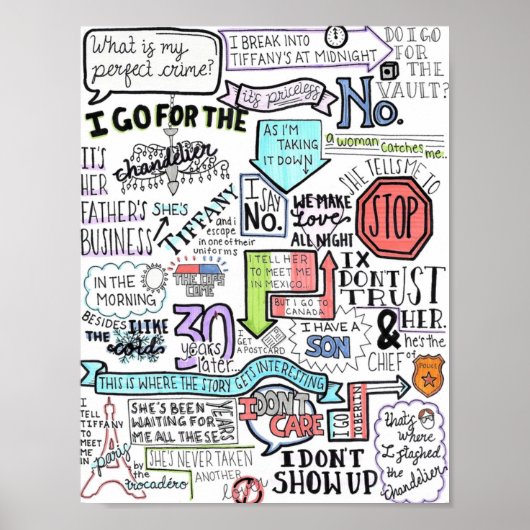 What is my
perfect crime?
I BREAK INTO
TIFFANY'S AT MIDNIGHT
DO I GO
FOR
THE
VAULT?
it's priceless
No.
I GO FOR THE
chandelier
AS I'M
TAKING
IT DOWN
a WOMAN CATCHES
me..
IT'S
HER
FATHER'S
BUSINESS
SHE'S
TIFFANY
I
SAY
NO.
SHE TELLS ME TO
STOP
WE MAKE
Love
ALL NIGHT
and i
escape
in one of their
uniforms
IN THE
MORNING
THE COPS
COME
I TELL HER
TO MEET ME
IN MEXICO..
BUT I GO TO
CANADA
I
DON'T
TRUST
HER.
BESIDES
I LIKE
THE
cold
30
years
later...
I
GET
A POSTCARD
I HAVE A
SON
&
he's the
CHIEF OF
POLICE
THIS IS WHERE THE STORY GETS INTERESTING
I
TELL
TIFFANY
TO
MEET
ME IN
paris
by
the
trocadéro
SHE'S BEEN
WAITING FOR
ME ALL THESE
YEARS
SHE'S NEVER TAKEN
ANOTHER
lover
I DON'T
CARE
I DON'T
SHOW UP
I GO
TO BERLIN
that's
where
I stashed
the
chandelier